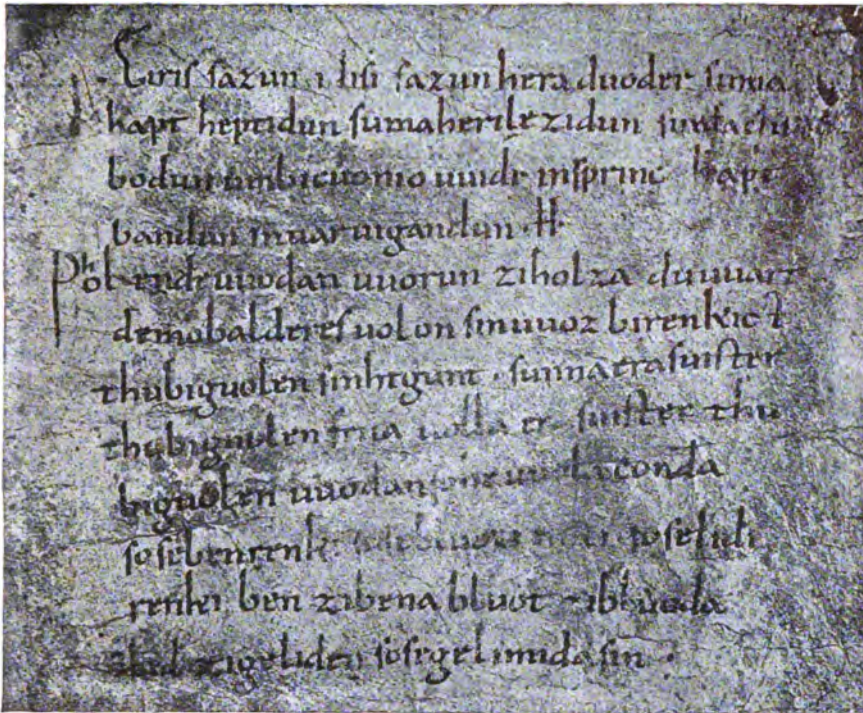 Eiris sazun idisi sazun hera duoder suma
hapt heptidun sumaherilezidun sumaclubo
bodun umbicuonio uuidi insprinc hapt
bandun inuar uigandun · H
Phol ende uuodan uuorun ziholza du uuart
demobalderes uolon sinuuoz birenkict
thubiguolen sinhtgunt · sunnaerasuister
thubiguolen friia uolla era suister thu
biguolen uuodan sohe uuolaconda
sosebenrenki sosebluotrenki soselidi
renki ben zibena bluot zibluoda
lid zigeliden sosegelimidasin ·